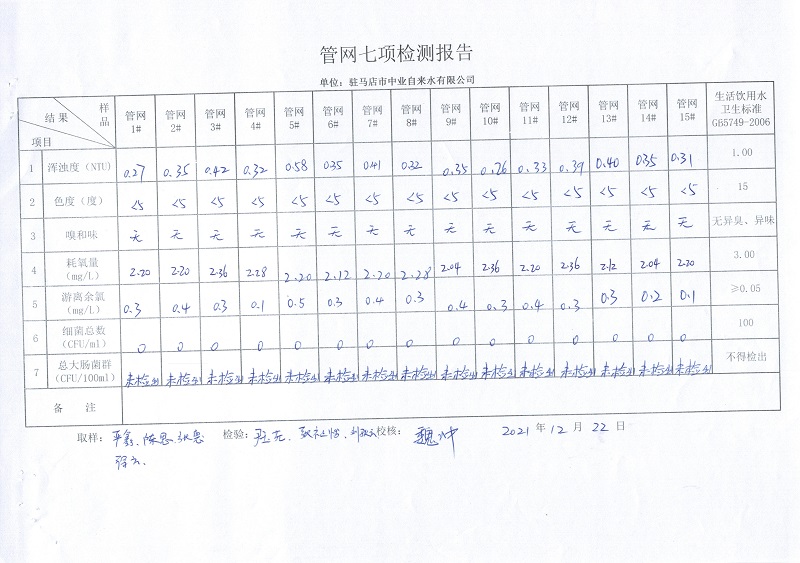 管网七项检测报告
单位：驻马店市中业自来水有限公司
结果 样品 项目 管网1# 管网2# 管网3# 管网4# 管网5# 管网6# 管网7# 管网8# 管网9# 管网10# 管网11# 管网12# 管网13# 管网14# 管网15# 生活饮用水卫生标准GB5749-2006
1 浑浊度（NTU） 0.27 0.35 0.42 0.32 0.58 0.35 0.41 0.32 0.35 0.26 0.33 0.39 0.40 0.35 0.31 1.00
2 色度（度） <5 <5 <5 <5 <5 <5 <5 <5 <5 <5 <5 <5 <5 <5 <5 15
3 嗅和味 无 无 无 无 无 无 无 无 无 无 无 无 无 无 无 无异臭、异味
4 耗氧量（mg/L） 2.20 2.20 2.36 2.28 2.20 2.12 2.20 2.28 2.04 2.36 2.20 2.36 2.12 2.04 2.20 3.00
5 游离余氯（mg/L） 0.3 0.4 0.3 0.1 0.5 0.3 0.4 0.3 0.4 0.3 0.4 0.3 0.3 0.2 0.1 ≥0.05
6 细菌总数（CFU/ml） 0 0 0 0 0 0 0 0 0 0 0 0 0 0 0 100
7 总大肠菌群（CFU/100ml） 未检出 未检出 未检出 未检出 未检出 未检出 未检出 未检出 未检出 未检出 未检出 未检出 未检出 未检出 未检出 不得检出
备 注
取样： 检验： 校核： 2021 年 12 月 22 日